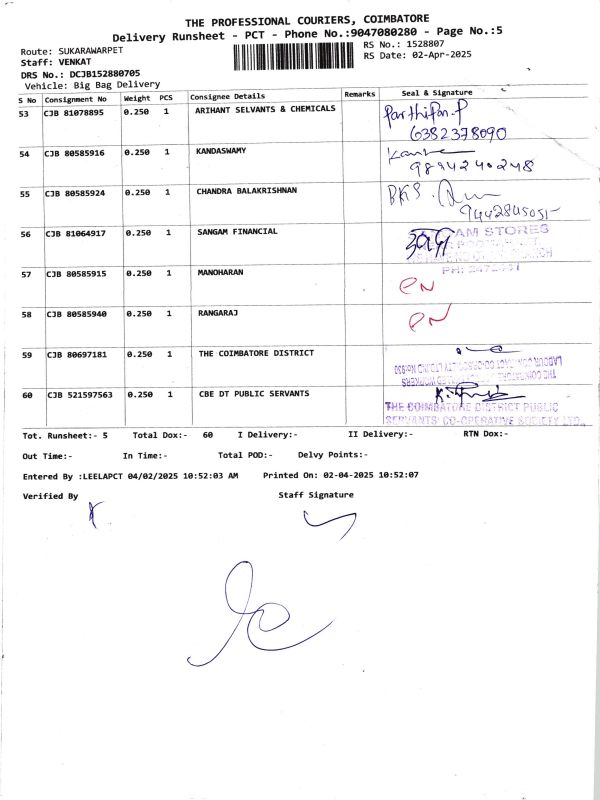 THE PROFESSIONAL COURIERS, COIMBATORE
Delivery Runsheet - PCT - Phone No.:9047080280 - Page No.:5
Route: SUKARAWARPET
RS No.: 1528807
Staff: VENKAT
RS Date: 02-Apr-2025
DRS No.: DCJB152880705
Vehicle: Big Bag Delivery
S No Consignment No Weight PCS Consignee Details Remarks Seal & Signature
53 CJB 81078895 0.250 1 ARIHANT SELVANTS & CHEMICALS Parthipan.P
6382378090
54 CJB 80585916 0.250 1 KANDASWAMY
9894240248
55 CJB 80585924 0.250 1 CHANDRA BALAKRISHNAN BKS.
9442845051
56 CJB 81064917 0.250 1 SANGAM FINANCIAL AM STORES
57 CJB 80585915 0.250 1 MANOHARAN
58 CJB 80585940 0.250 1 RANGARAJ
59 CJB 80697181 0.250 1 THE COIMBATORE DISTRICT
60 CJB 521597563 0.250 1 CBE DT PUBLIC SERVANTS
THE COIMBATORE DISTRICT PUBLIC
SERVANTS' CO-OPERATIVE SOCIETY LTD.,
Tot. Runsheet:- 5 Total Dox:- 60 I Delivery:- II Delivery:- RTN Dox:-
Out Time:- In Time:- Total POD:- Delvy Points:-
Entered By :LEELAPCT 04/02/2025 10:52:03 AM Printed On: 02-04-2025 10:52:07
Verified By Staff Signature